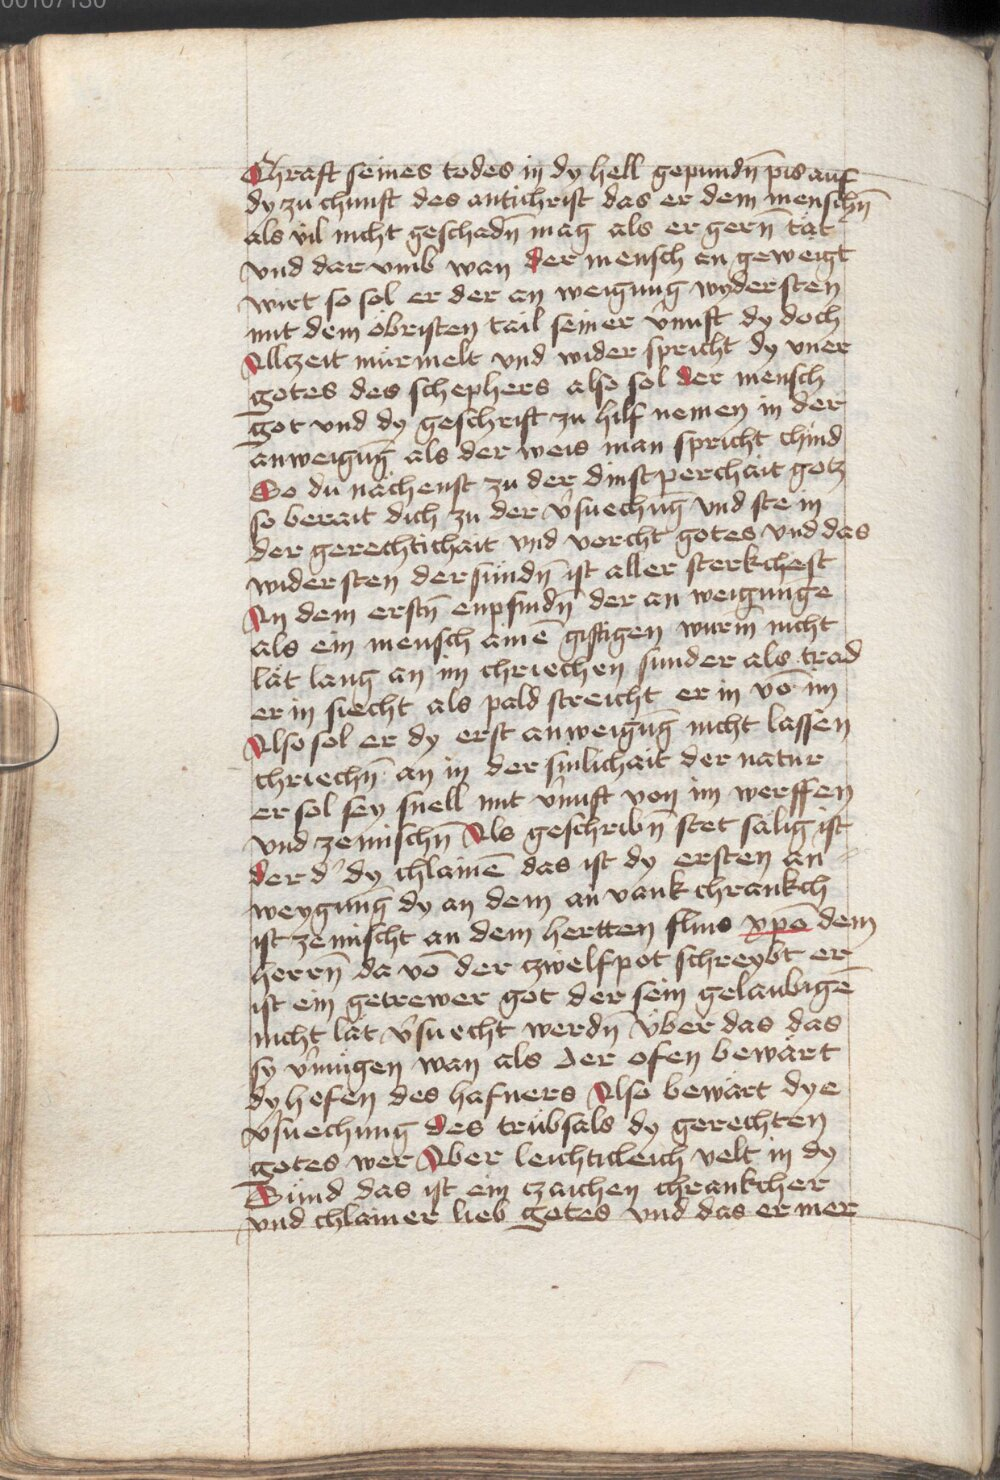 00107130
Chraft seines todes in dy hell gepundn̄ pis auf
dy zu chunft des antichrist das er dem menschn̄
als vil nicht geschadn̄ mag als er gern̄ tät
vnd dar vmb wan der mensch an geweigt
wirt so sol er der an weigung wydersten
mit dem öbristen tail seiner vnuft dy doch
Allczeit mürmelt vnd wider spricht dy vner
gotes des schephers also sol der mensch
got vnd dy geschrift zu hilf nemen in der
anweigūg als der weis man spricht chind
So du nächenst zu der dinstperchait gotz
so berait dich zu der v̉suechūg vnd ste in
der gerechtichait vnd vorcht gotes vnd das
widersten der sündn̄ ist aller sterkchest
An dem erstn̄ enpfindn̄ der an weigunge
als ein mensch ainē giftigen wurm nicht
lät lang an im chriechen sunder als trad
er in siecht als pald streicht er in vō im
Also sol er dy erst anweigūg nicht lassen
chriechn̄ an in der sinlichait der natur
er sol sey snell mit v̉nuft von im werffen
vnd zemischn̄ Als geschribn̄ stet sälig ist
der d̉ dy chlainē das ist dy ersten an
weygung dy an dem an vank chrankch
ist zemischt an dem hertten flins xp̄o dem
herrn̄ da vō der czwelfpot schreybt er
ist ein getrewer got der sein gelaubigē
nicht lät v̉suecht werdn̄ über das das
sy v̉mügen wan als der ofen bewärt
dy hefen des hafners Also bewärt dye
v̉suechung des trübsals dy gerechten
gotes wer Aber leichticleich velt in dy
Sünd das ist ein czaichen chrankcher
vnd chlainer lieb gotes vnd das er mer